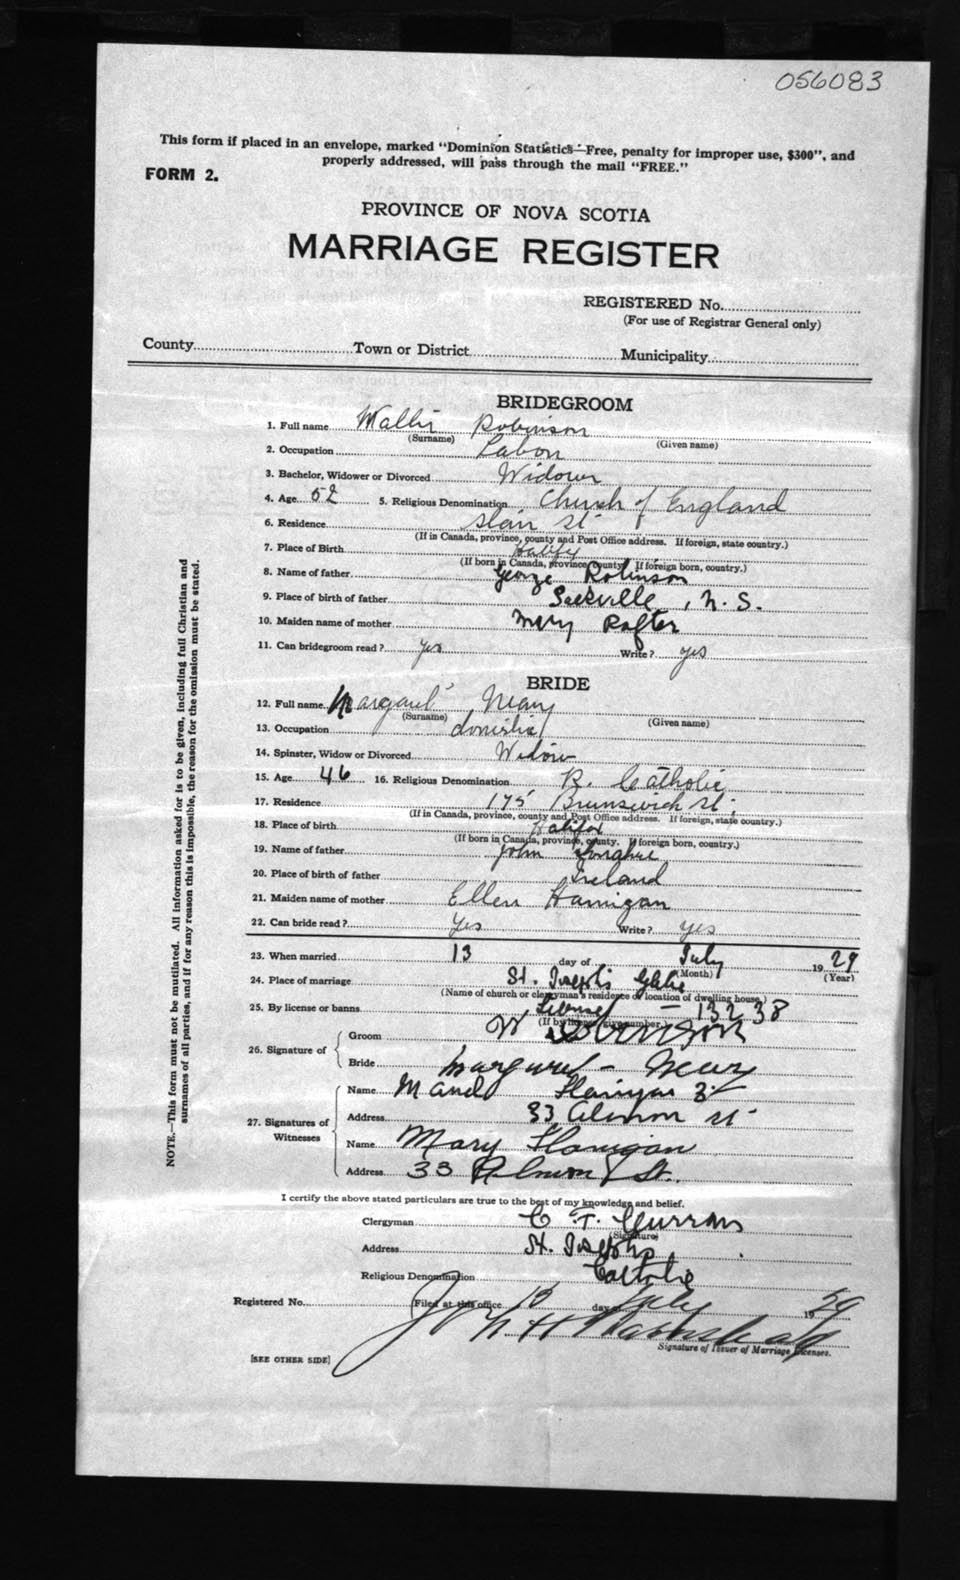 056083
This form if placed in an envelope, marked "Dominion Statistics—Free, penalty for improper use, $300", and
properly addressed, will pass through the mail "FREE."
FORM 2.
PROVINCE OF NOVA SCOTIA
MARRIAGE REGISTER
REGISTERED No.
(For use of Registrar General only)
County Town or District Municipality
BRIDEGROOM
1. Full name Robinson
(Surname) (Given name)
2. Occupation Labor
3. Bachelor, Widower or Divorced Widower
4. Age 52 5. Religious Denomination Church of England
6. Residence St
(If in Canada, province, county and Post Office address. If foreign, state country.)
7. Place of Birth Halifx
(If born in Canada, province, county. If foreign born, country.)
8. Name of father George Robinson
9. Place of birth of father Sackville, N. S.
10. Maiden name of mother Mary Rafter
11. Can bridegroom read? yes Write? yes
BRIDE
12. Full name Margaret
(Surname) (Given name)
13. Occupation domestic
14. Spinster, Widow or Divorced Widow
15. Age 46 16. Religious Denomination R. Catholic
17. Residence 175 Brunswick St.
(If in Canada, province, county and Post Office address. If foreign, state country.)
18. Place of birth Halifax
(If born in Canada, province, county. If foreign born, country.)
19. Name of father John
20. Place of birth of father Ireland
21. Maiden name of mother Ellen Hannigan
22. Can bride read? Yes Write? yes
23. When married 13 day of July 19 29
(Month) (Year)
24. Place of marriage St. Joseph's Glebe
(Name of church or clergyman's residence or location of dwelling house.)
25. By license or banns License — 13238
(If by license, give number.)
26. Signature of
Groom W Robinson
Bride Margaret
27. Signatures of Witnesses
Name Flanigan
Address 33 Almon St
Name Mary Flanigan
Address 33 Almon St.
I certify the above stated particulars are true to the best of my knowledge and belief.
Clergyman C. T. Curran
(Signature)
Address St. Josephs
Religious Denomination Catholic
Registered No. Filed at this office 15 day of July 19 29
Signature of Issuer of Marriage Licenses.
[SEE OTHER SIDE]
NOTE.—This form must not be mutilated. All information asked for is to be given, including full Christian and
surnames of all parties, and if for any reason this is impossible, the reason for the omission must be stated.